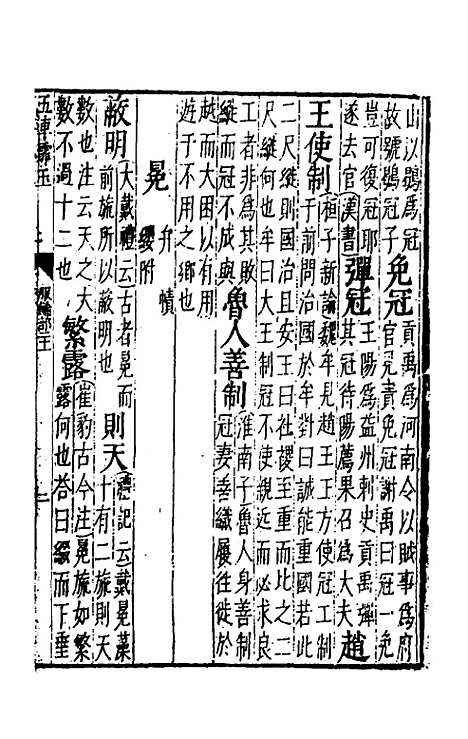 山以鶡爲冠
故號鶡冠子
免冠
貢禹爲河南令以賊事爲府
官見責免冠謝禹曰冠一免
豈可復冠耶
遂去官漢書
彈冠
王陽爲益州刺史貢禹彈
其冠待陽薦果召爲大夫
趙
王使制
桓子新論魏牟見趙王王方使冠工制
于前問治國於牟對曰誠能重國若此
二尺縰則國治且安王曰社稷至重而比之二
尺縰何也牟曰大王制冠不使親近而必求良
工者非爲其敗
縰而冠不成與
魯人善制
淮南子魯人身善制
冠妻善織履往徙於
越而大困以有用
遊于不用之鄉也
冕
弁 幘
纓附
蔽明
大戴禮云古者冕而
前旒所以蔽明也
則天
禮記云戴冕藻
十有二旒則天
數也注云天之大
數不過十二也
繁露
崔豹古今注冕旒如繁
露何也答曰綴而下垂
五車霏玉
服飾部